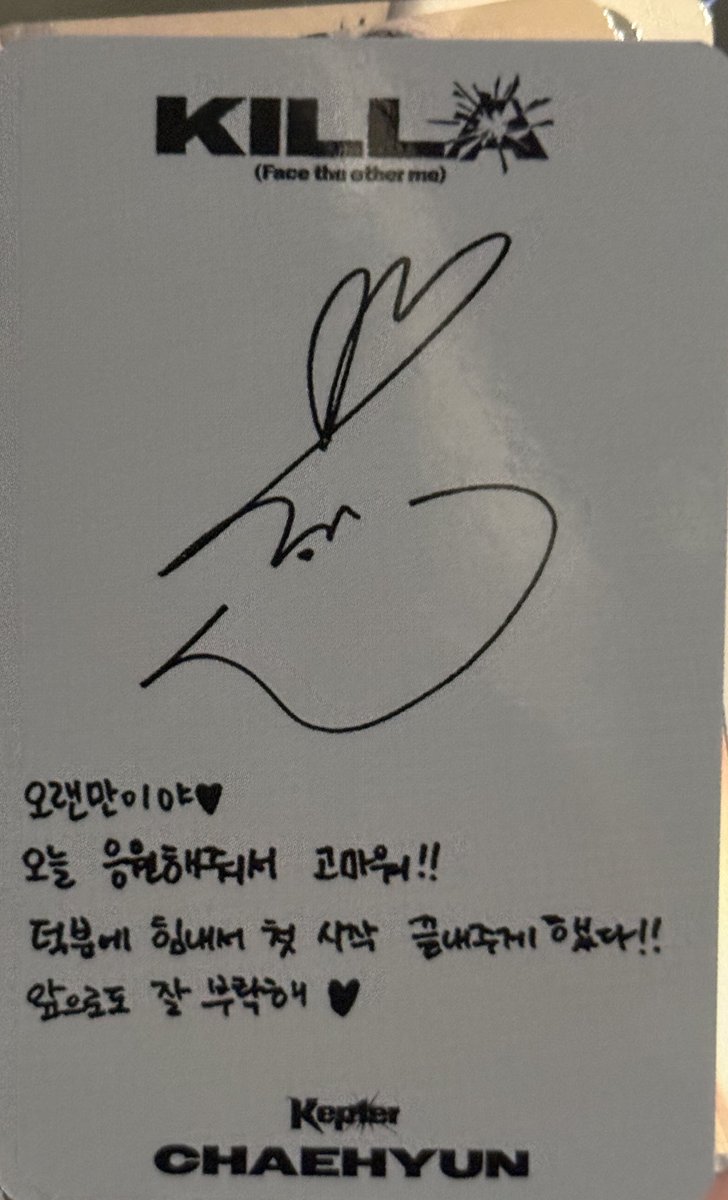 KILLA
(Face the other me)
오랜만이야♥
오늘 응원해줘서 고마워!!
덧붐에 힘내서 첫 시작 끝내주게 했다!!
앞으로도 잘 부탁해 ♥
Kep1er
CHAEHYUN